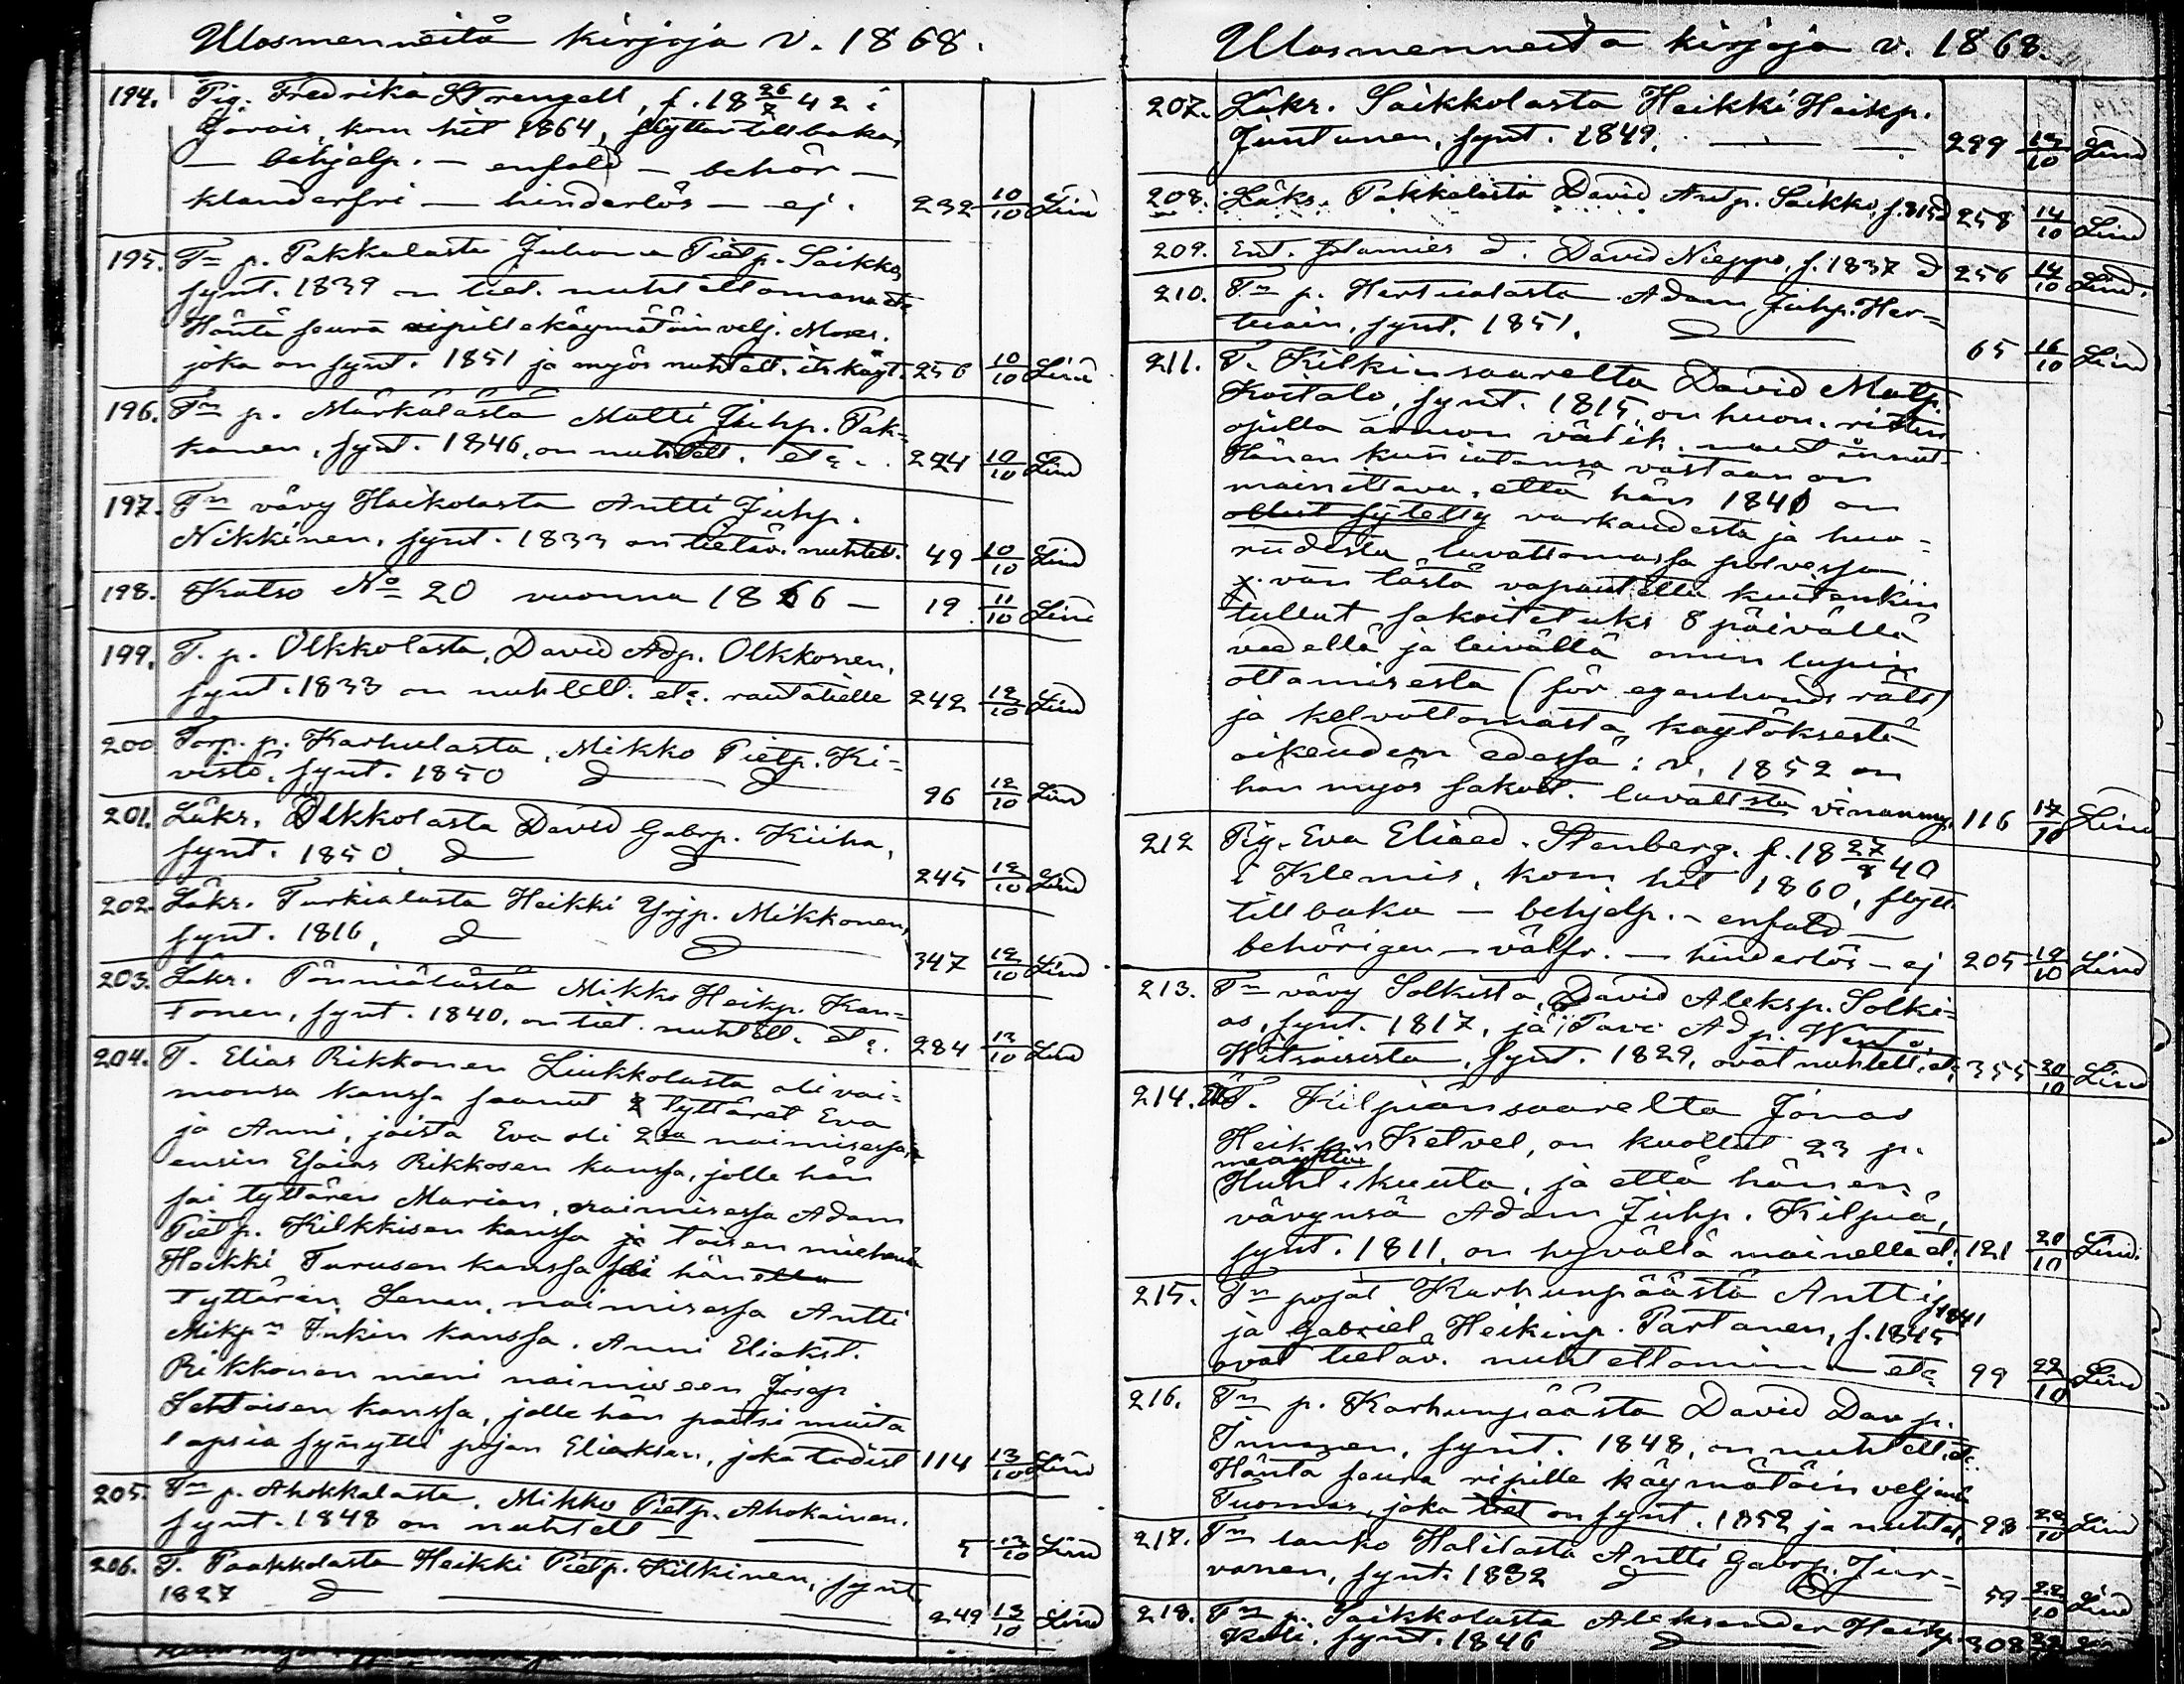 Ulosmenneitä kirjoja v. 1868.
194. Pig. Fredrika Strengell, f. 18 26/7 42 i
Jorois, kom hit 1864, flyttar tillbaka,
— behjelp. — enfald — behör —
klanderfri — hinderlös — ej. 232 10/10 Lind
195. Tn p. Pakkalasta Juhana Pietp. Saikko,
synt. 1839 on tiet. nuhtettomana etc
Häntä seura ripille käymätöin velj. Moses.
joka on synt. 1851 ja myös nuhtett. its käyt. 256 10/10 Lind
196. Tn p. Märkälästä Matti Juhp. Pak=
kanen, synt. 1846, on nuhtett. etc. 224 10/10 Lind
197. Tn vävy Haikolasta Antti Juhp.
Nikkinen, synt. 1833 on tietäv. nuhtet. 49 10/10 Lind
198. Katso No 20 vuonna 1866 — 19 11/10 Lind
199. T. p. Olkkolasta, David Adp. Olkkonen,
synt. 1833 on nuhtett. etc. rautatielle 242 12/10 Lind
200 Torp. p. Karhulasta, Mikko Pietp. Ki=
vistö, synt. 1850 d d 96 12/10 Lind
201. Läkr. Olkkolasta David Gabrp. Kiiha,
synt. 1850. d 245 12/10 Lind
202. Läkr. Turkialasta Heikki Yrjp. Mikkonen,
synt. 1816, d d 347 12/10 Lind
203. Läkr. Tönniälästä Mikko Heikp. Kan=
tonen, synt. 1840, on tiet. nuhtett. etc. 284 13/10 Lind
204. T. Elias Rikkonen Liukkolasta oli vai=
monsa kanssa saanut 2 tyttäret Eva
ja Anni, joista Eva oli 2sa naimisessa,
ensin Esaias Rikkosen kanssa, jolle hän
sai tyttären Marian, naimisessa Adam
Pietp. Kilkkisen kanssa ja toisen miehensä
Heikki Turusen kanssa sai hän
tyttären Lenan, naimisessa Antti
Mikpn Inkin kanssa. Anni Eliakst.
Rikkonen meni naimiseen Josep
Lehtoisen kanssa, jolle hän paitsi muita
lapsia synytti pojan Eliaksen, joka todist 114 13/10 Lind
205. Tn p. Ahokkalasta, Mikko Pietp. Ahokainen.
synt. 1848 on nuhtett — 5 13/10 Lind
206. T. Paakkolasta Heikki Pietp. Kilkinen, synt.
1827 d 249 13/10 Lind
Ulosmenneitä kirjoja v. 1868.
207. Läkr. Saikkolasta Heikki Heikp.
Juntunen, synt. 1849. — — 299 13/10 Lind
208. Läks. Pakkalasta David Antp. Saikko, f. 815 d 258 14/10 Lind
209. Ent. d. David Nieppo, f. 1837 d 256 14/10 Lind.
210. Tn p. Hertualasta Adam Juhp. Her=
tuain, synt. 1851. d 65 16/10 Lind
211. T. Kilkinsaarelta David Matp.
Kostalo, synt. 1815, on huon.
opilla armon välik. nautinnut
Hänen kunniatansa vastaan on
mainittava, että hän 1840 on
ollut sytetty varkaudesta ja huo=
ruudesta luvattomassa polvessa
x. vän tästä vapautettu kuitenkin
tullut sakoitetuks 8 päivällä
vedellä ja leivällä omin lupin
ottamisesta (för egenhands rätt)
ja kelvottomasta käytöksestä
oikeuden edessä: v. 1852 on
hän myös sakoit. luvattsta vinanmy. 116 17/10 Lind
212 Pig. Eva Eliaed. Stenberg. f. 18 27/8 40
i Klemis, kom hit 1860, flytt.
tillbaka — behjelp. — enfald —
behörigen — välfr. — hinderlös — ej 205 19/10 Lind
213. Tn vävy Solkista, David Aleksp. Solki=
as, synt. 1817, ja Pavi Adp. Wento,
Witsaisista, synt. 1829, ovat nuhtett. etc 355 20/10 Lind
214. T. Kilpiänsaarelta Jonas
Heikp. Ketvel, on kuollut 23 p.
Huhtikuuta, ja että hänen
vävynsä Adam Juhp. Kilpiä,
synt. 1811, on hyvällä mainella et. 121 20/10 Lind.
215. Tn pojat Karhunpäästä Antti f. 1841
ja Gabriel Heikinp. Partanen, f. 1845
ovat tietäv. nuhtettomin — etc 99 22/10 Lind
216. Tn p. Karhunpäästä David Davp.
Immonen, synt. 1848, on nuhtett. etc.
Häntä seura ripille käymätöin veljensä
Tuomas, joka on synt. 1852 ja nuhtet. 98 22/10 Lind
217. Tn lanko Halilasta Antti Gabrp. Jur=
vanen, synt. 1832 d 59 22/10 Lind
218. Tn p. Saikkolasta Aleksander Heikp.
synt. 1846 d 308